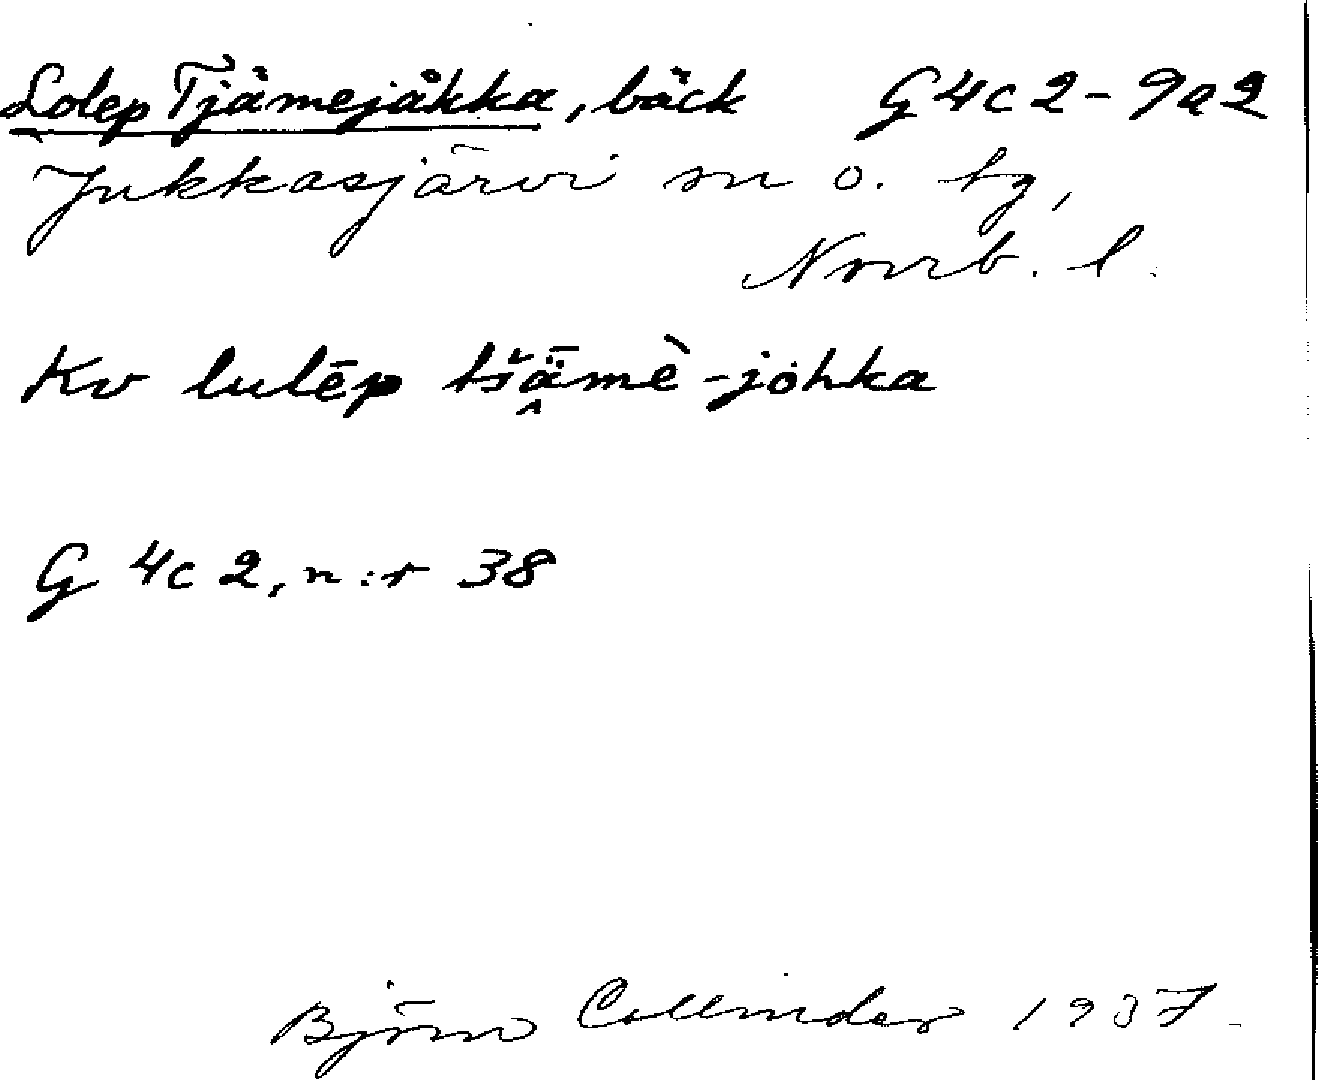 Lolep Tjåmejåkka, bäck G 4c 2 - 9a2
Jukkasjärvi sn o. tg,
Norrb. l.
Kv lulēp tšǟ̭mè-jo̊hka
G 4c 2, n:r 38
Björn Collinder 1937.